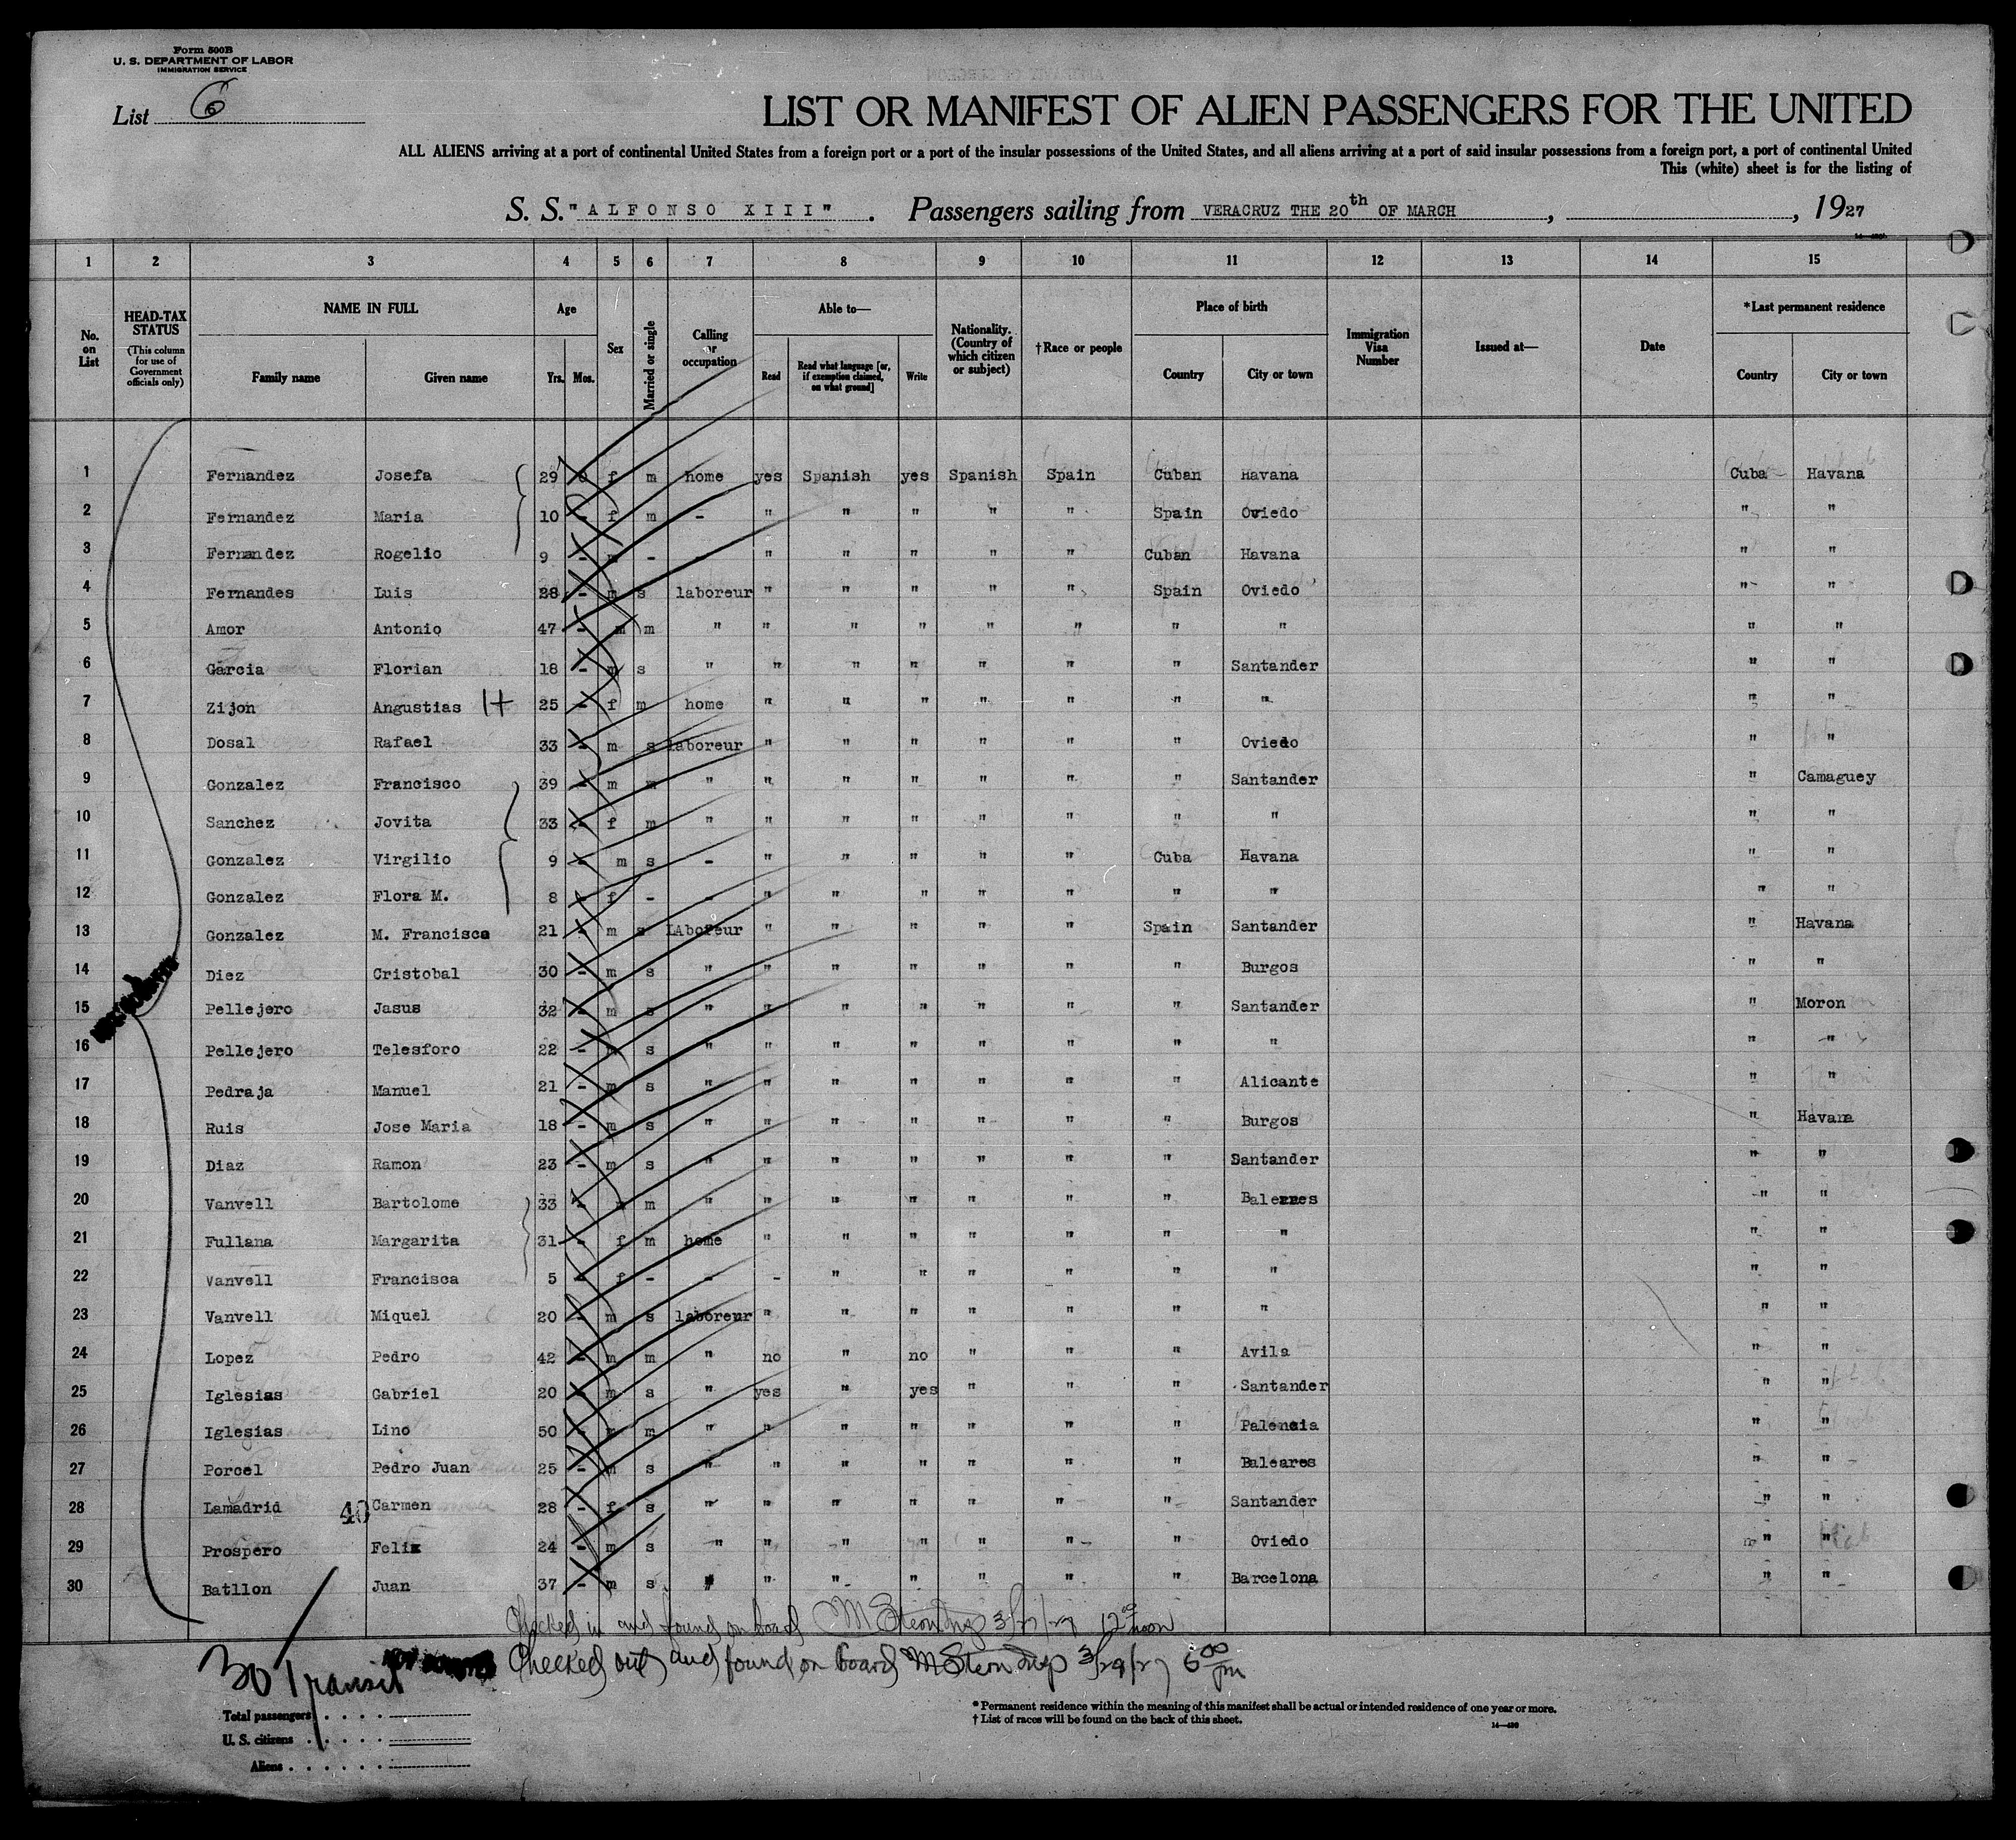 Form 500B
U. S. DEPARTMENT OF LABOR
IMMIGRATION SERVICE
List 6
LIST OR MANIFEST OF ALIEN PASSENGERS FOR THE UNITED
ALL ALIENS arriving at a port of continental United States from a foreign port or a port of the insular possessions of the United States, and all aliens arriving at a port of said insular possessions from a foreign port, a port of continental United
This (white) sheet is for the listing of
S. S. "ALFONSO XIII". Passengers sailing from VERACRUZ THE 20th OF MARCH, , 1927
1 2 3 4 5 6 7 8 9 10 11 12 13 14 15
No. on List
HEAD-TAX STATUS
(This column for use of Government officials only)
NAME IN FULL
Family name Given name
Age
Yrs. Mos.
Sex
Married or single
Calling or occupation
Able to—
Read
Read what language [or, if exemption claimed, on what ground]
Write
Nationality. (Country of which citizen or subject)
†Race or people
Place of birth
Country City or town
Immigration Visa Number
Issued at—
Date
*Last permanent residence
Country City or town
1 Fernandez Josefa 29 f m home yes Spanish yes Spanish Spain Cuban Havana Cuba Havana
2 Fernandez Maria 10 - f m - " " " " " Spain Oviedo " "
3 Fernandez Rogelio 9 - m - - " " " " " Cuban Havana " "
4 Fernandes Luis 28 - m s laboreur " " " " " Spain Oviedo " "
5 Amor Antonio 47 - m m " " " " " " " " " "
6 Garcia Florian 18 - m s " " " " " " " Santander " "
7 Zijon Angustias H 25 - f m home " " " " " " " " "
8 Dosal Rafael 33 - m s laboreur " " " " " " Oviedo " "
9 Gonzalez Francisco 39 - m m " " " " " " " Santander " Camaguey
10 Sanchez Jovita 33 - f m " " " " " " " " " "
11 Gonzalez Virgilio 9 - m s - " " " " " Cuba Havana " "
12 Gonzalez Flora M. 8 - f - - " " " " " " " " "
13 Gonzalez M. Francisca 21 - m s LAboreur " " " " " Spain Santander " Havana
14 Diez Cristobal 30 - m s " " " " " " " Burgos " "
15 Pellejero Jasus 32 - m s " " " " " " " Santander " Moron
16 Pellejero Telesforo 22 - m s " " " " " " " " " "
17 Pedraja Manuel 21 - m s " " " " " " " Alicante " "
18 Ruis Jose Maria 18 - m s " " " " " " " Burgos " Havana
19 Diaz Ramon 23 - m s " " " " " " " Santander " "
20 Vanvell Bartolome 33 - m m " " " " " " " " "
21 Fullana Margarita 31 - f m home " " " " " " " " "
22 Vanvell Francisca 5 - f - - - " " " " " " " "
23 Vanvell Miquel 20 - m s laboreur " " " " " " " " "
24 Lopez Pedro 42 - m m " no " no " " " Avila " "
25 Iglesias Gabriel 20 - m s " yes " yes " " " Santander " "
26 Iglesias Lino 50 - m m " " " " " " " Palencia " "
27 Porcel Pedro Juan 25 - m s " " " " " " " Baleares " "
28 Lamadrid 40 Carmen 28 - f s " " " " " " " Santander " "
29 Prospero Felix 24 - m s " " " " " " " Oviedo " "
30 Batllon Juan 37 - m s " " " " " " " Barcelona " "
Checked in and found on board 12 noon
Checked out and found on board 6 00 pm
30 Transit
Total passengers
U. S. citizens
Aliens
* Permanent residence within the meaning of this manifest shall be actual or intended residence of one year or more.
† List of races will be found on the back of this sheet.
14—430